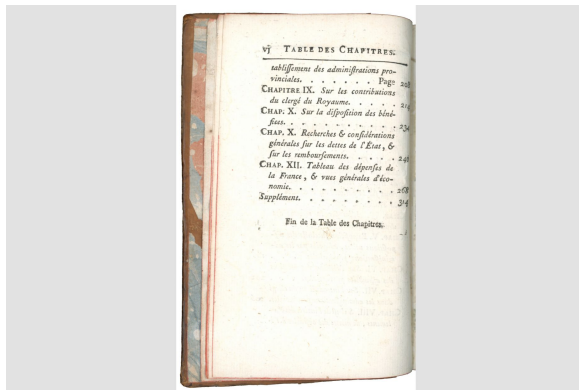 vj TABLE DES CHAPITRES.
tablissement des administrations pro-
vinciales. . . . . . . Page 208
CHAPITRE IX. Sur les contributions
du clergé du Royaume. . . . . 214
CHAP. X. Sur la disposition des béné-
fices. . . . . . . . . . 234
CHAP. X. Recherches & considérations
générales sur les dettes de l'État, &
sur les remboursements. . . . . 248
CHAP. XII. Tableau des dépenses de
la France, & vues générales d'éco-
nomie. . . . . . . . . . 268
Supplément. . . . . . . . . 314
Fin de la Table des Chapitres.